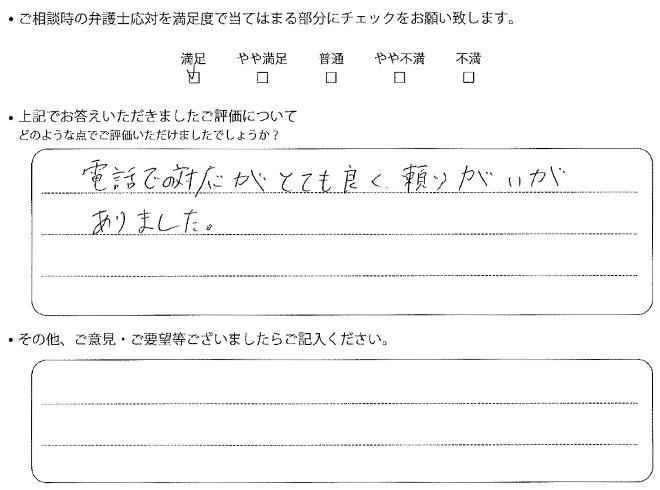 • ご相談時の弁護士応対を満足度で当てはまる部分にチェックをお願い致します。
満足 やや満足 普通 やや不満 不満
☑ □ □ □ □
• 上記でお答えいただきましたご評価について
どのような点でご評価いただけましたでしょうか？
電話での対応がとても良く、頼りがいが
ありました。
• その他、ご意見・ご要望等ございましたらご記入ください。